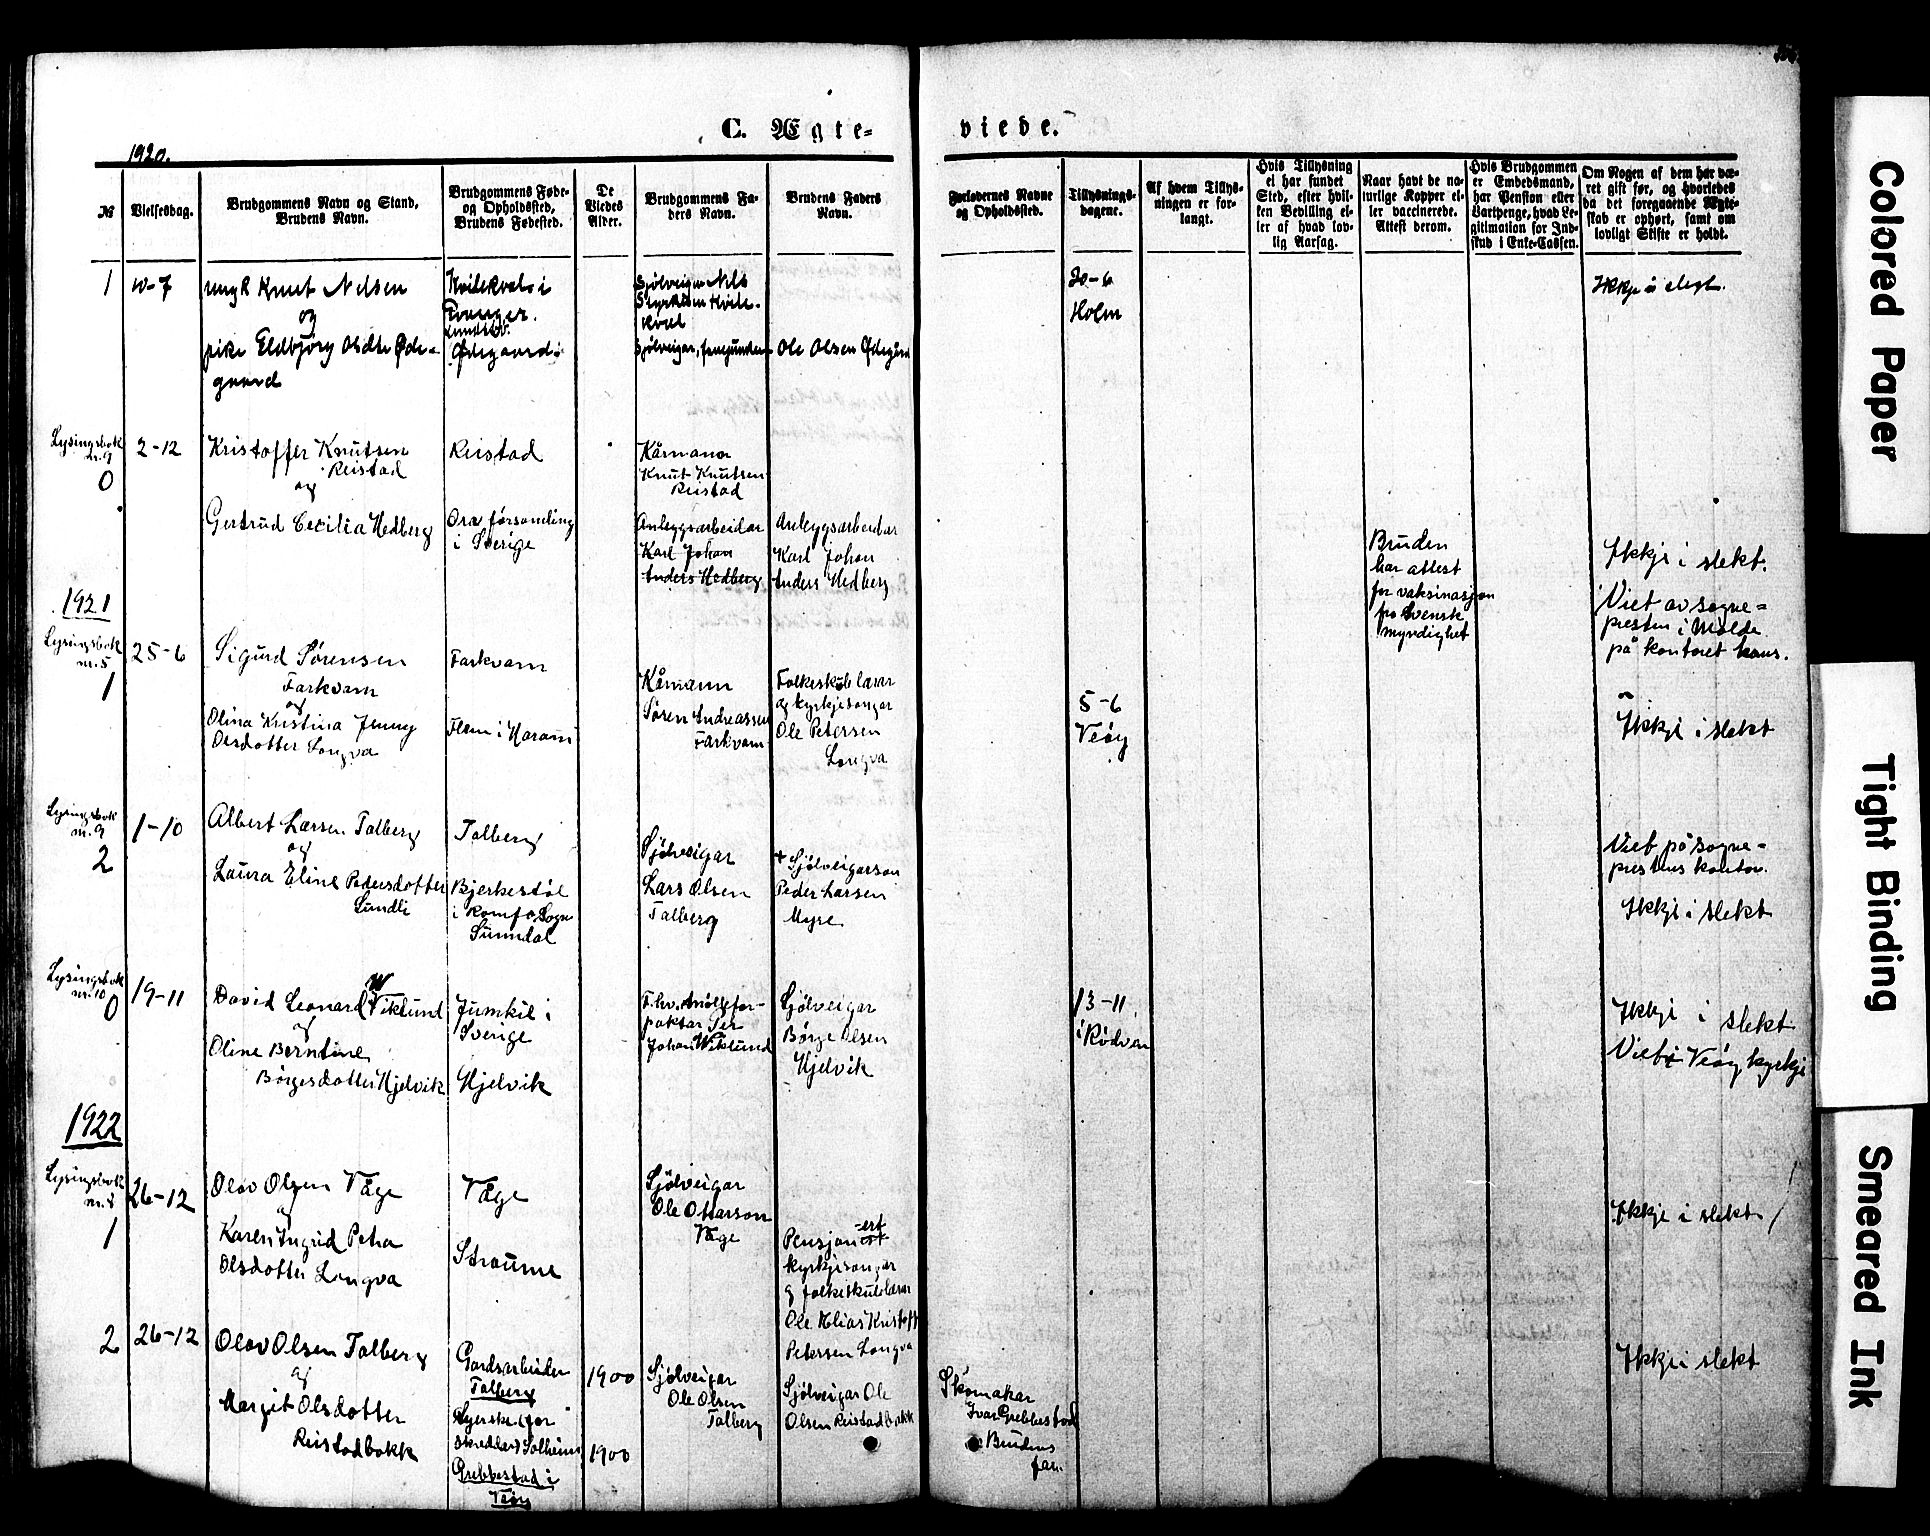 C. Ægte-
viede.
1920.
№
Vielsesdag.
Brudgommens Navn og Stand,
Brudens Navn.
Brudgommens Føde-
og Opholdssted,
Brudens Fødested.
De
Viedes
Alder.
Brudgommens Fa-
ders Navn.
Brudens Faders
Navn.
Forlovernes Navne
og Opholdssted.
Tillysnings-
dagene.
Af hvem Tillys-
ningen er for-
langt.
Hvis Tillysning
ei har fundet
Sted, efter hvil-
ken Bevilling el-
ler af hvad lov-
lig Aarsag.
Naar havt de na-
turlige Kopper el-
ler vaccinerede.
Attest derom.
Hvis Brudgommen
er Embedsmand,
har Pension eller
Vartpenge, hvad Le-
gitimation for Ind-
skud i Enke-Cassen.
Om Nogen af dem har væ-
ret gift før, og hvorledes
da det foregaaende Ægte-
skab er ophørt, samt om
lovligt Skifte er holdt.
1
10-7
ungk Knut Nilsen
og
pike Eldbjørg Olsdtr Øde-
gaard
Kvitekval i
Ødegaard
Sjølveigar Nils
Styrksen Kvite-
kval
Sjølveigar,
Ole Olsen Ødegård
20-6
Holm
Ikkje i slegt.
Lysingsbok
nr. 9
0
2-12
Kristoffer Knutsen
Reistad
og
Gertrud Cecilia Hedberg
Reistad
Ora forsamling
i Sverige
Kårmann
Knut Knutsen
Reistad
Anleggsarbeidar
Karl Johan
Anders Hedberg
Anleggsarbeidar
Karl Johan
Anders Hedberg
Bruden
har attest
for vaksinasjon
fra Svensk
myndighet
Ikkje i slekt.
Viet av sogne-
presten i Molde
på kontoret hans.
1921
Lysingsbok
nr. 5
1
25-6
Sigurd Sørensen
Farkvam
og
Olina Kristina Jenny
Olsdotter Longva
Farkvam
Flem i Haram
Kårmann
Søren Andreassen
Farkvam
Folkeskulelærar
og kyrkjesongar
Ole Petersen
Longva
5-6
Veöy
Ikkje i slekt
Lysingsbok
nr. 9
2
1-10
Albert Larsen Talberg
og
Laura Eline Pedersdotter
Sundli
Talberg
Bjerkestöl
i Romfo Sogn
Sunndal
Sjølveigar
Lars Olsen
Talberg
+ Sjølveigarson
Peder Larsen
Myre
Viet på sogne-
prestens kontor.
Ikkje i slekt
Lysingsbok
nr. 10
0
19-11
David Leonard Wiklund
og
Oline Berntine
Børgesdotter Hjelvik
Jumkil i
Sverige
Hjelvik
Fhv. Mölle for-
paktar Per
Johan Wiklund
Sjølveigar
Børge Olsen
Hjelvik
13-11
i Rødven
Ikkje i slekt
Viet i Veöy kyrkje
1922
Lysingsbok
nr. 8
1
26-12
Olav Olsen Våge
og
Karen Ingrid Petra
Olsdotter Longva
Våge
Straume
Sjølveigar
Ole Ottarson
Våge
Pensjonert
kyrkjesongar
og folkeskulelærar
Ole Elias Kristoff
Petersen Longva
Ikkje i slekt
2
26-12
Olav Olsen Talberg
og
Margit Olsdotter
Reistadbakk
Gardsarbeider
Talberg
Syerske for
skreddar Solheim
Grebbestad i
Veöy
1900
1900
Sjølveigar
Ole Olsen
Talberg
Sjølveigar Ole
Olsen Reistadbakk
Skomakar
Ivar Grebbestad
og Brudens
far.
Ikkje i slekt
Colored Paper
Tight Binding
Smeared Ink